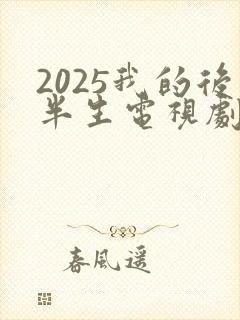 2025我的後
半生電視劇
春風遥